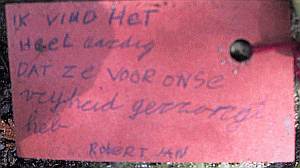 IK VIND HET
HEEL aardig
DAT ZE VOOR ONSE
vryheid gezorgt
heb
ROBERT JAN